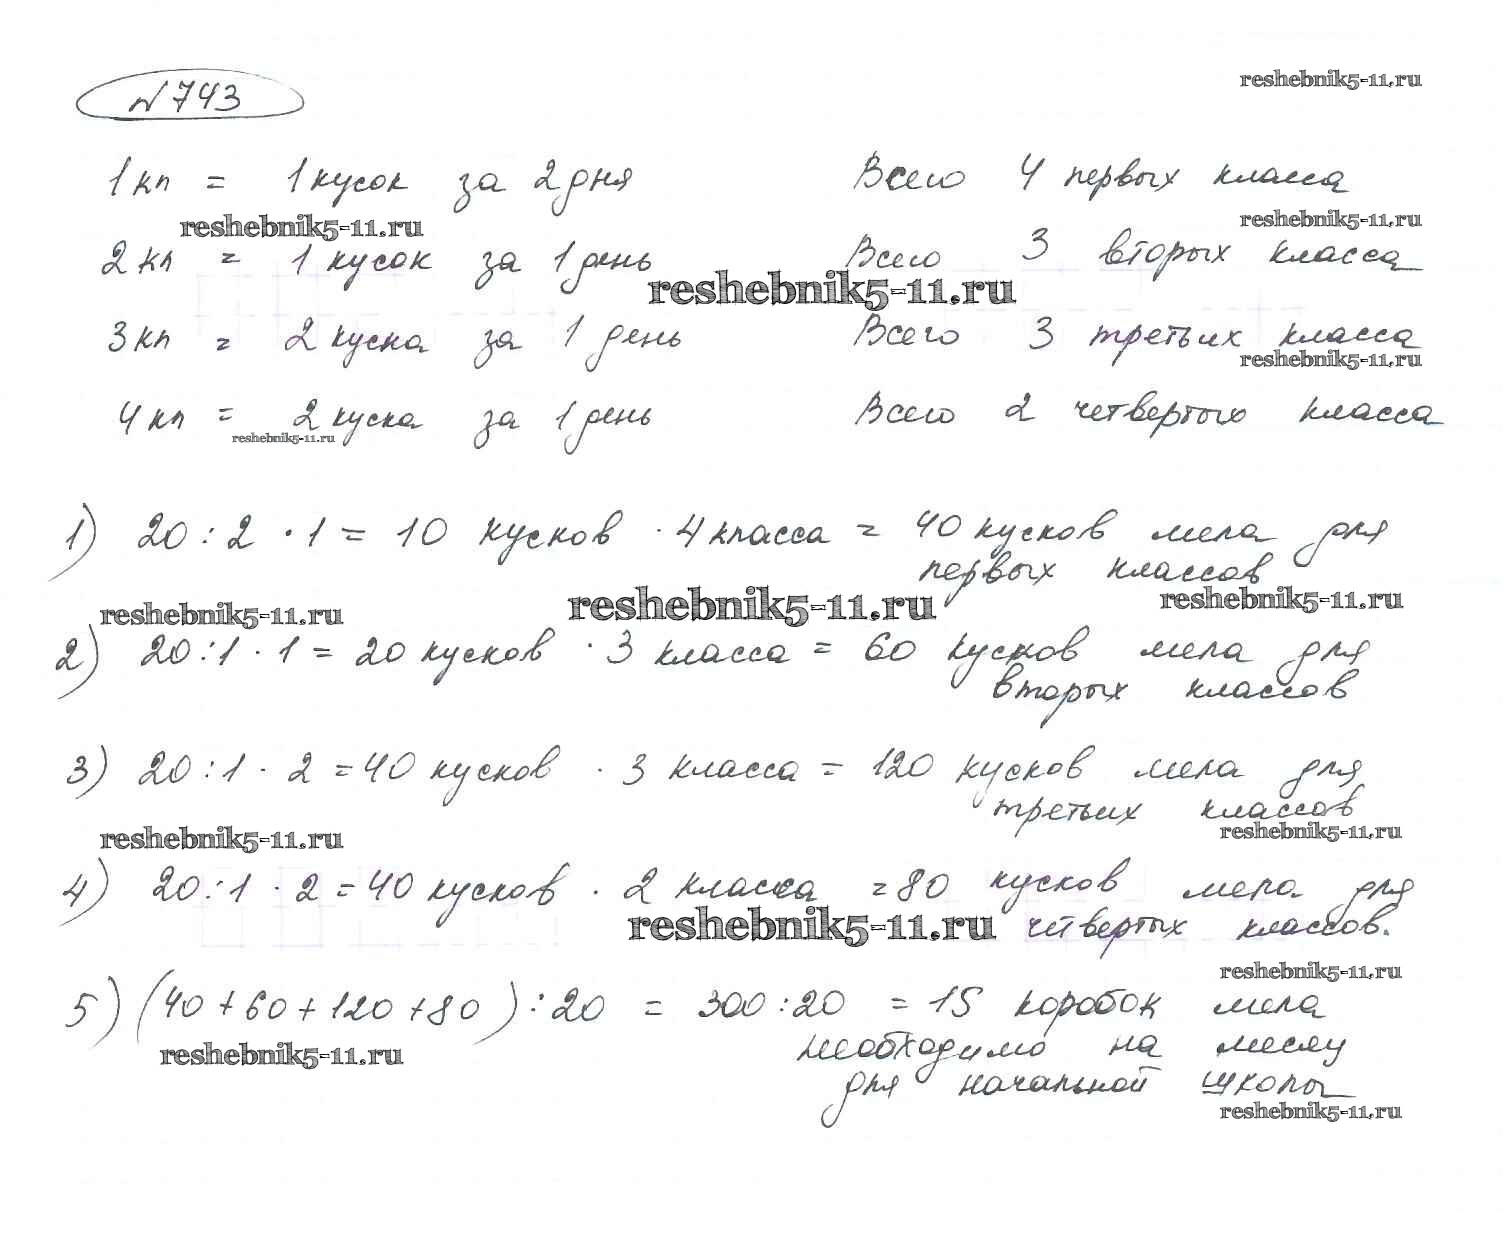 №743
reshebnik5-11.ru
1 кл = 1 кусок за 2 дня Всего 4 первых класса
reshebnik5-11.ru reshebnik5-11.ru
2 кл = 1 кусок за 1 день Всего 3 вторых класса
reshebnik5-11.ru
3 кл = 2 куска за 1 день Всего 3 третьих класса
reshebnik5-11.ru
4 кл = 2 куска за 1 день Всего 2 четвертых класса
reshebnik5-11.ru
1) 20 : 2 · 1 = 10 кусков · 4 класса = 40 кусков мела для
первых классов
reshebnik5-11.ru reshebnik5-11.ru reshebnik5-11.ru
2) 20 : 1 · 1 = 20 кусков · 3 класса = 60 кусков мела для
вторых классов
3) 20 : 1 · 2 = 40 кусков · 3 класса = 120 кусков мела для
третьих классов
reshebnik5-11.ru reshebnik5-11.ru
4) 20 : 1 · 2 = 40 кусков · 2 класса = 80 кусков мела для
reshebnik5-11.ru четвертых классов.
reshebnik5-11.ru
5) (40 + 60 + 120 + 80) : 20 = 300 : 20 = 15 коробок мела
reshebnik5-11.ru необходимо на месяц
для начальной школы
reshebnik5-11.ru